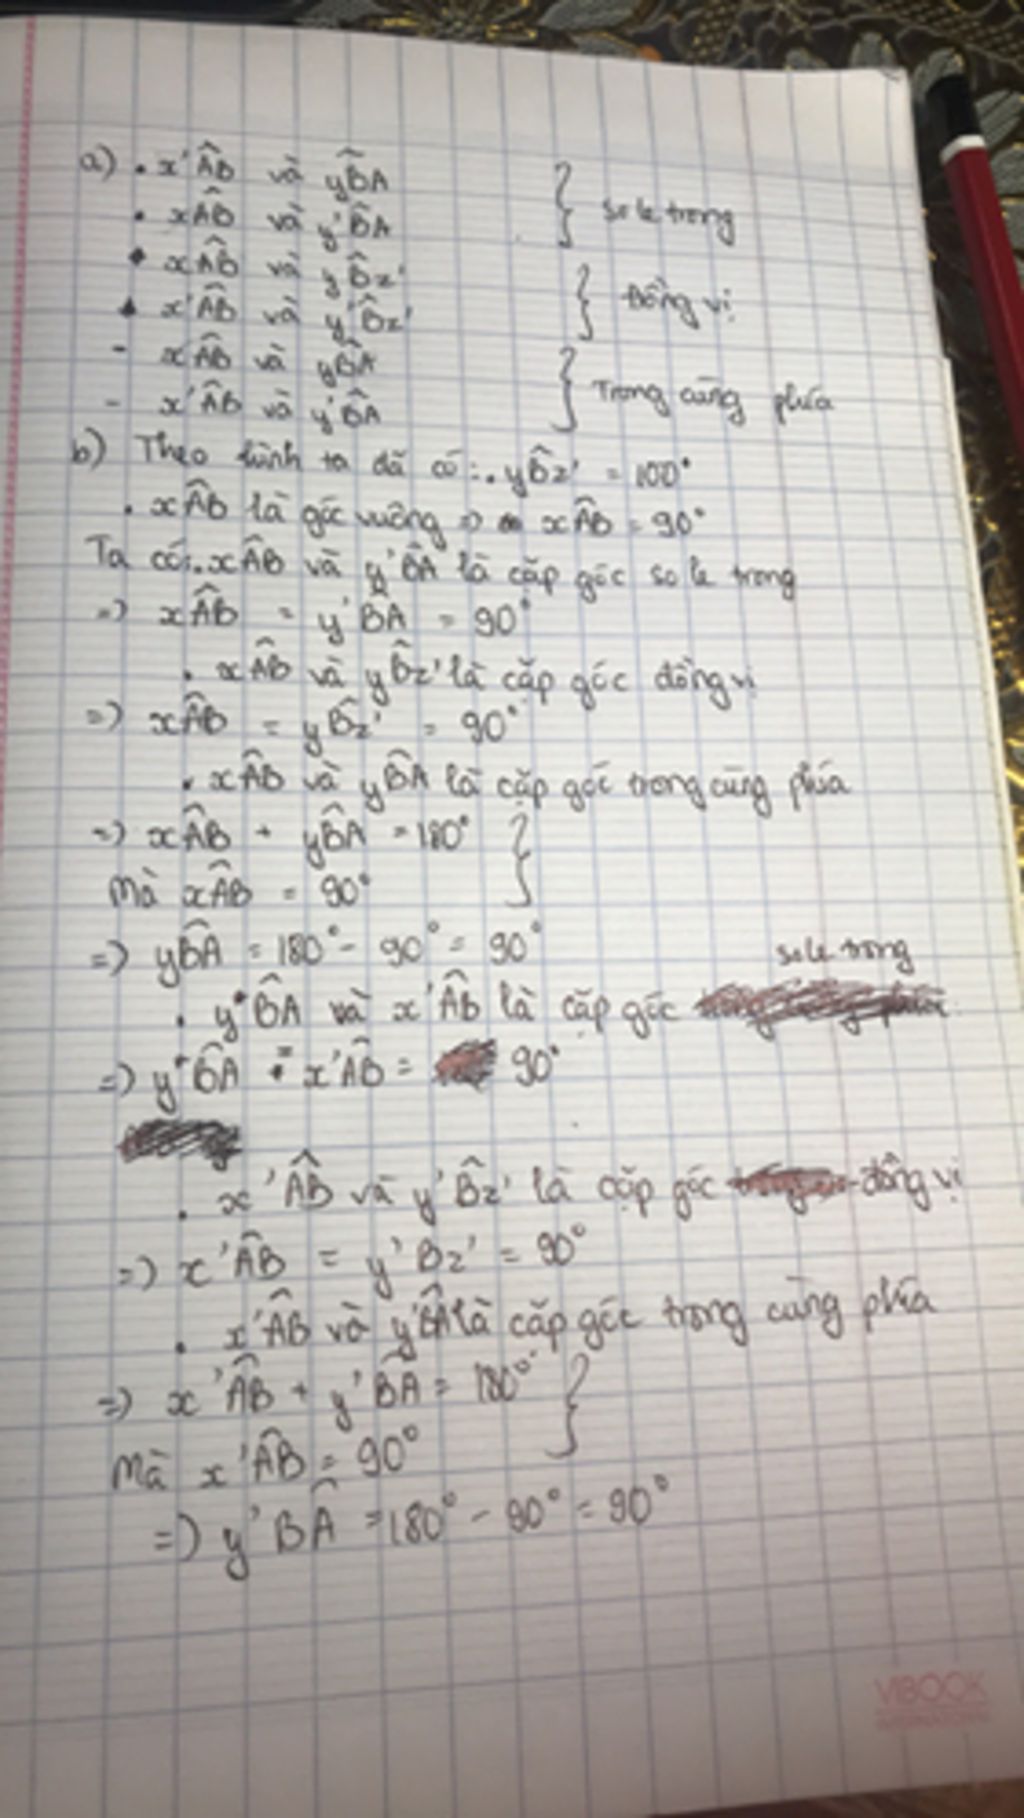 a) . x'ÂB và yB̂A
. xÂB và y'B̂A } so le trong
• xÂB và yB̂z'
x'ÂB và y'B̂z' } Đồng vị
- xÂB và yB̂A
- x'ÂB và y'B̂A } Trong cùng phía
b) Theo hình ta đã có: . yB̂z' = 100°
. xÂB là góc vuông => xÂB = 90°
Ta có: . xÂB và y'B̂A là cặp góc so le trong
=> xÂB = y'B̂A = 90°
. xÂB và yB̂z' là cặp góc đồng vị
=> xÂB = yB̂z' = 90°
. xÂB và yB̂A là cặp góc trong cùng phía
=> xÂB + yB̂A = 180° }
Mà xÂB = 90°
=> yB̂A = 180° - 90° = 90°
so le trong
. yB̂A và x'ÂB là cặp góc
=> yB̂A = x'ÂB = 90°
. x'ÂB và y'B̂z' là cặp góc đồng vị
=> x'ÂB = y'Bz' = 90°
. x'ÂB và y'B̂A là cặp góc trong cùng phía
=> x'ÂB + y'B̂A = 180° }
Mà x'ÂB = 90°
=> y'BÂ = 180° - 90° = 90°
VIBOOK
INTERNATIONAL